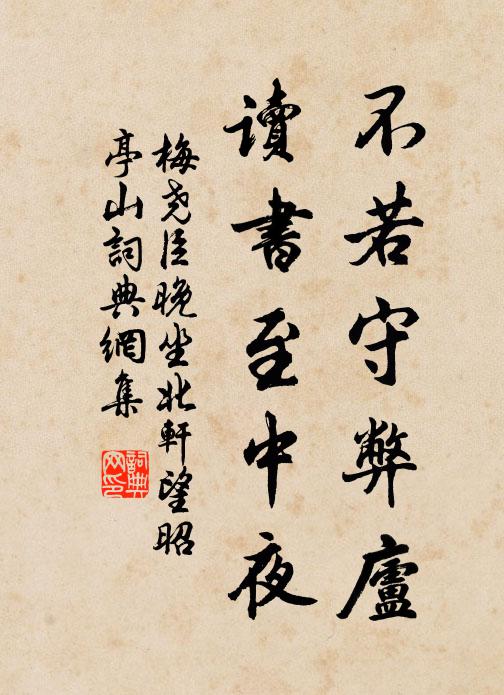 不若守弊廬
讀書至中夜
梅尧臣晚坐北軒望昭
亭山詞典網集
詞典網印